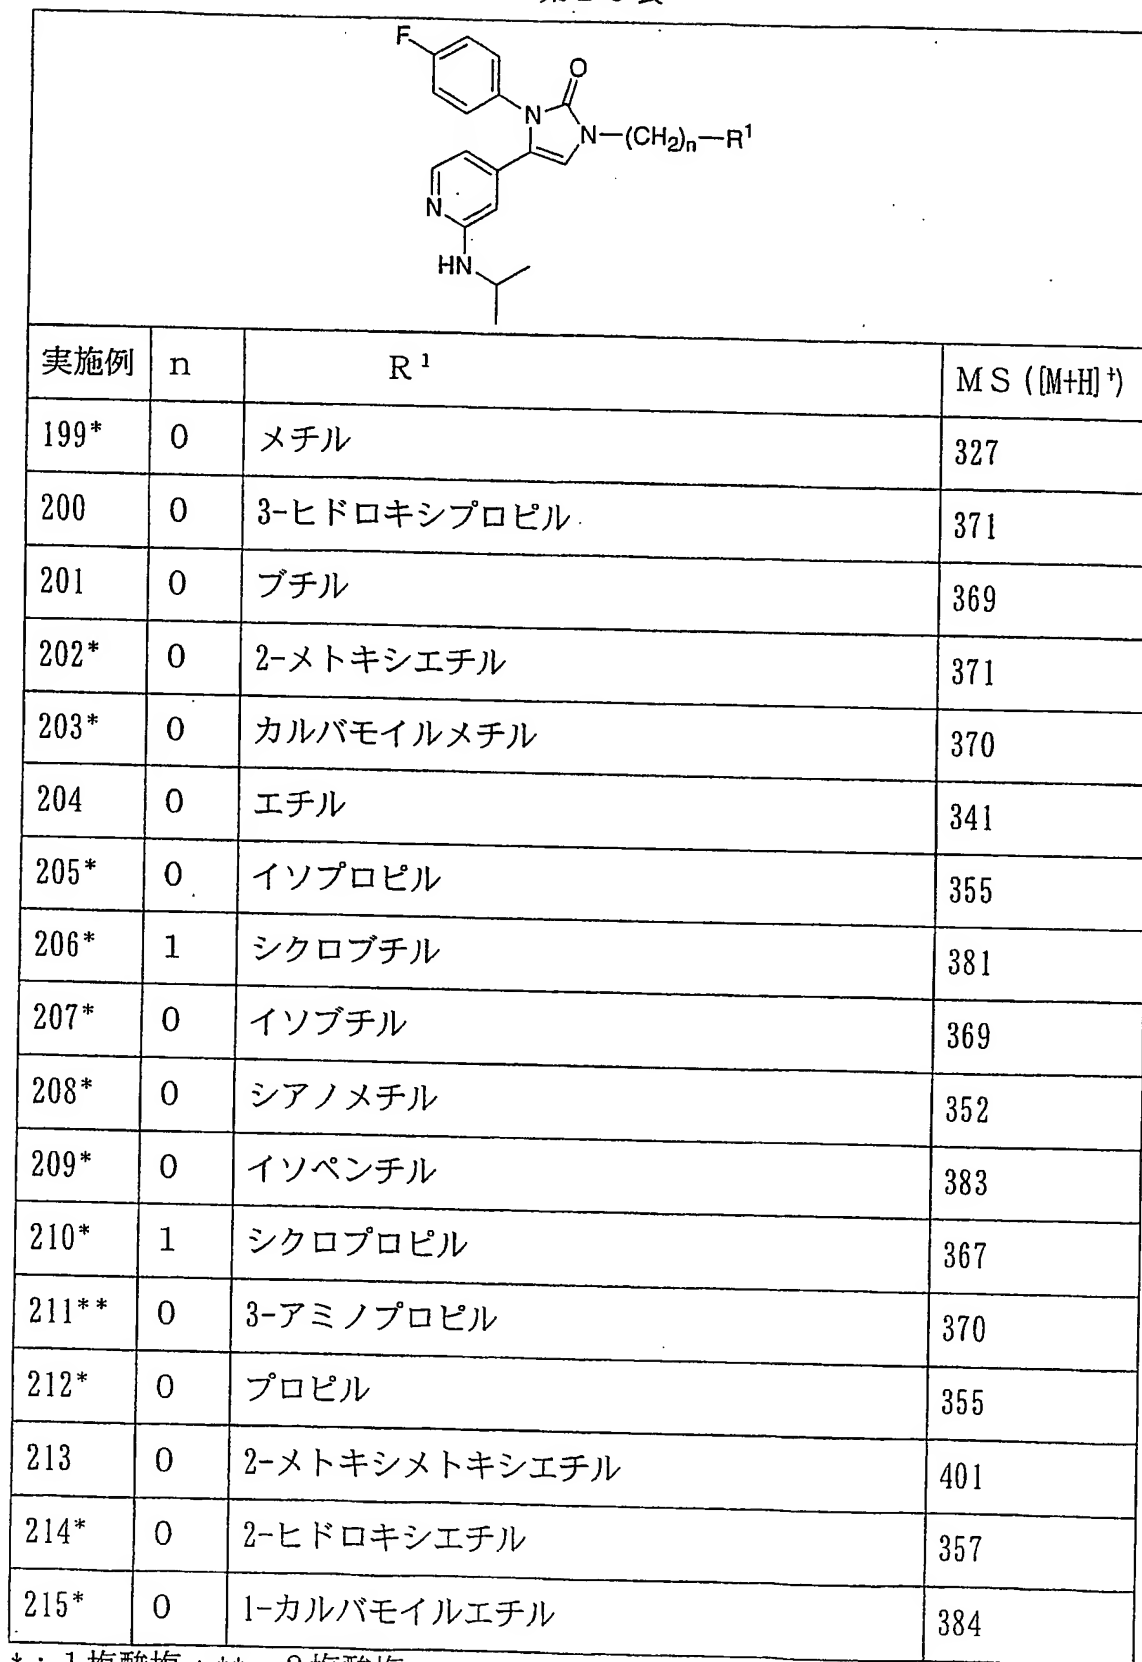 F
O
N
N—(CH2)n—R¹
N
HN
実施例 n R¹ MS ([M+H]⁺)
199* 0 メチル 327
200 0 3-ヒドロキシプロピル 371
201 0 ブチル 369
202* 0 2-メトキシエチル 371
203* 0 カルバモイルメチル 370
204 0 エチル 341
205* 0 イソプロピル 355
206* 1 シクロブチル 381
207* 0 イソブチル 369
208* 0 シアノメチル 352
209* 0 イソペンチル 383
210* 1 シクロプロピル 367
211** 0 3-アミノプロピル 370
212* 0 プロピル 355
213 0 2-メトキシメトキシエチル 401
214* 0 2-ヒドロキシエチル 357
215* 0 1-カルバモイルエチル 384